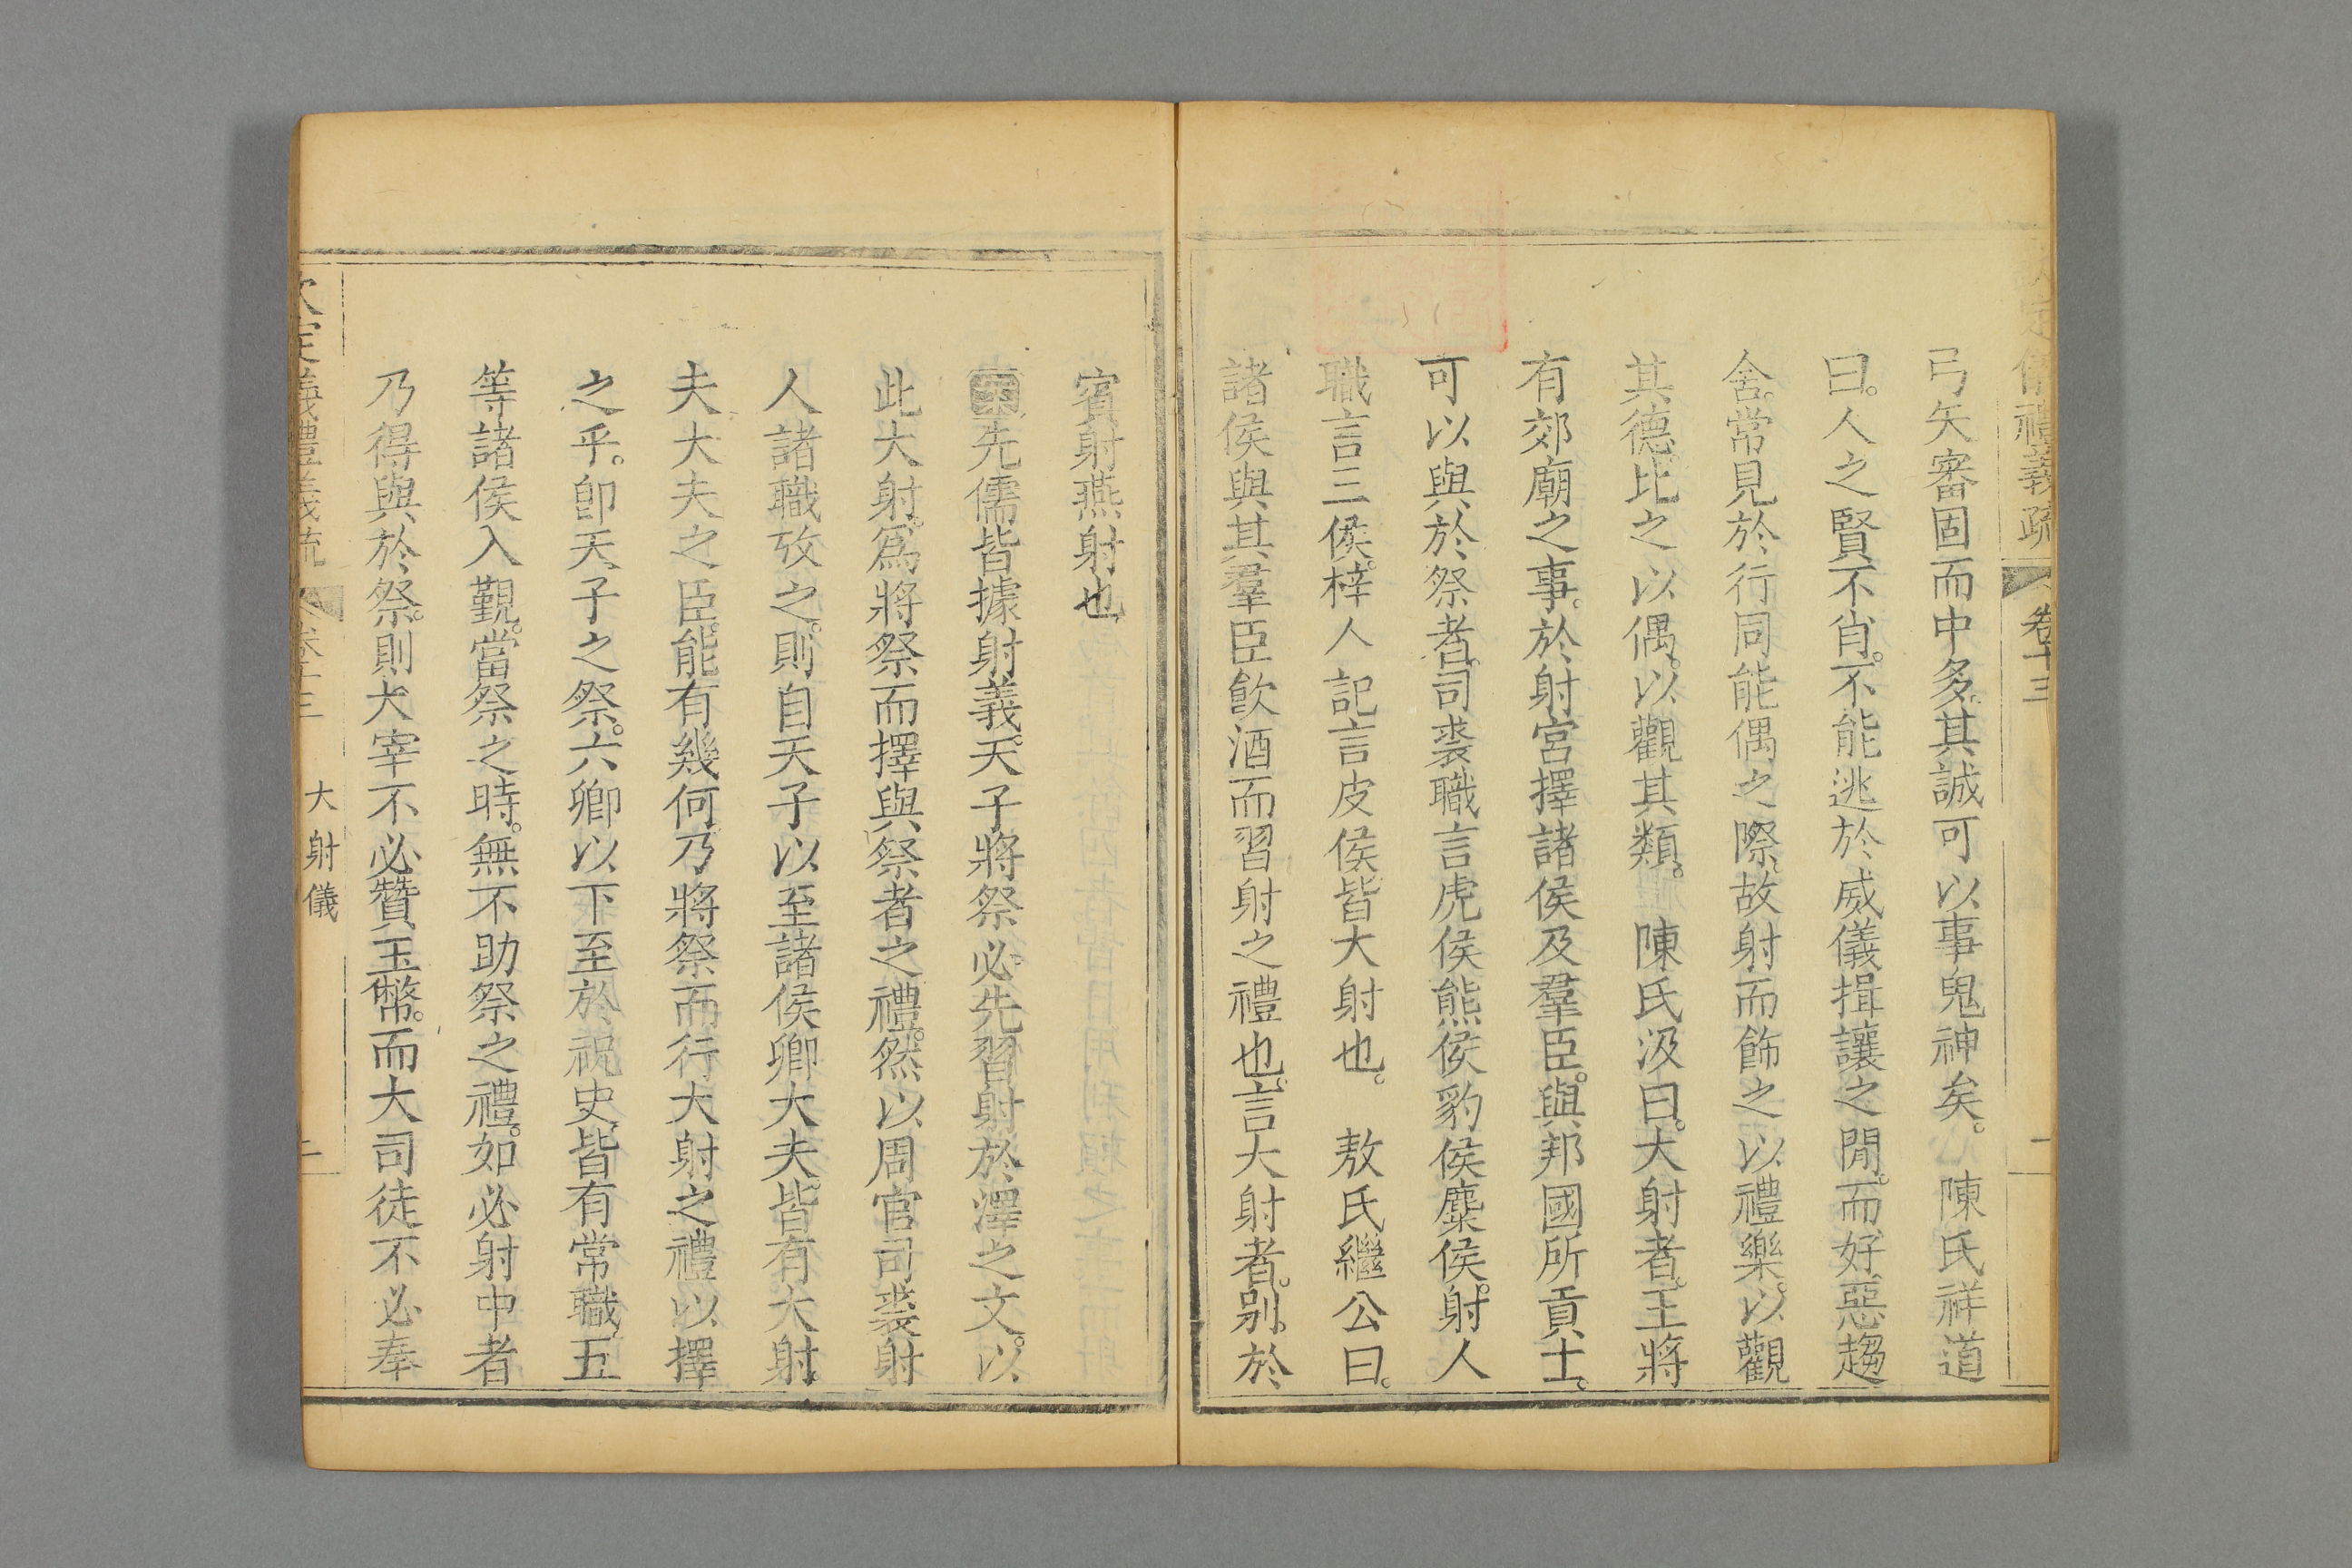 儀禮義疏 卷十三 二
弓矢審固而中多其誠可以事鬼神矣。 陳氏祥道
曰。人之賢不肖。不能逃於威儀揖讓之閒。而好惡趨
舍。常見於行同能偶之際。故射而飾之以禮樂。以觀
其德比之以偶。以觀其類。 陳氏汲曰。大射者。王將
有郊廟之事。於射宮擇諸侯及羣臣。與邦國所貢士。
可以與於祭者。司裘職言虎侯熊侯豹侯麋侯。射人
職言三侯。梓人記言皮侯皆大射也。 敖氏繼公曰。
諸侯與其羣臣飲酒而習射之禮也。言大射者。別。於
賓射燕射也
案先儒皆據射義。天子將祭必先習射於澤之文。以
此大射。爲將祭而擇與祭者之禮。然以周官司裘射
人諸職攷之。則自天子以至諸侯卿大夫。皆有大射
夫大夫之臣。能有幾何乃將祭而行大射之禮以擇
之乎。卽天子之祭。六卿以下至於祝史。皆有常職五
等諸侯入覲。當祭之時。無不助祭之禮。如必射中者
乃得與於祭。則大宰不必贊玉幣。而大司徒不必奉
欽定義禮義疏 卷十三 大射儀 二